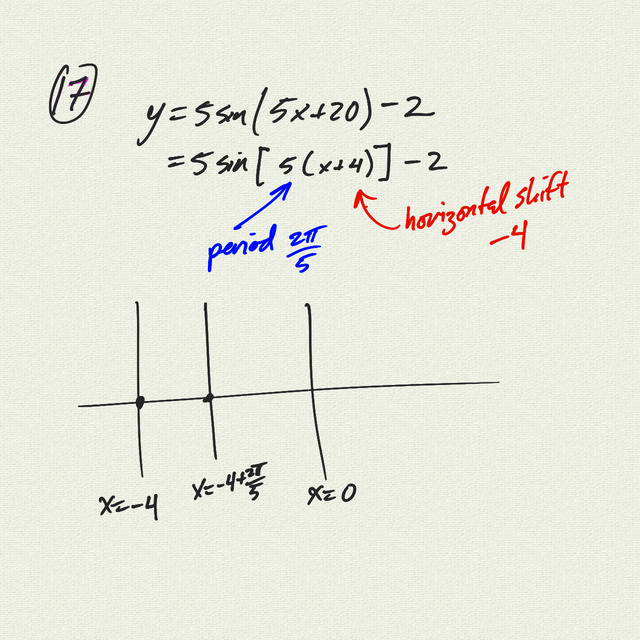 17
y = 5 sin(5x+20) - 2
= 5 sin[5(x+4)] - 2
period 2π/5
horizontal shift
-4
x=-4
x=-4+2π/5
x=0